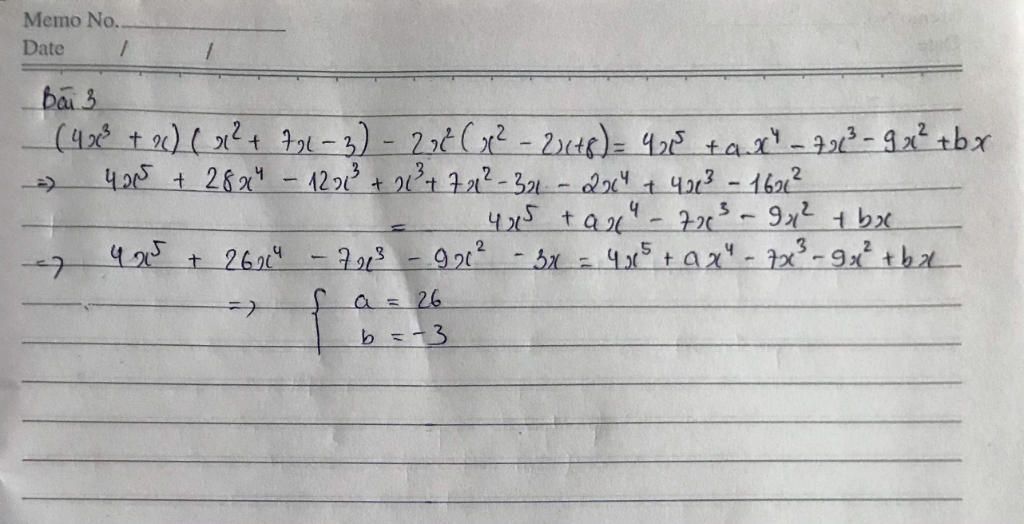 Memo No.
Date / /
Bài 3
(4x³ + x)(x² + 7x - 3) - 2x²(x² - 2x+8) = 4x⁵ + a.x⁴ - 7x³ - 9x² + bx
=> 4x⁵ + 28x⁴ - 12x³ + x³ + 7x² - 3x - 2x⁴ + 4x³ - 16x²
= 4x⁵ + ax⁴ - 7x³ - 9x² + bx
=> 4x⁵ + 26x⁴ - 7x³ - 9x² - 3x = 4x⁵ + ax⁴ - 7x³ - 9x² + bx
=> { a = 26
b = -3